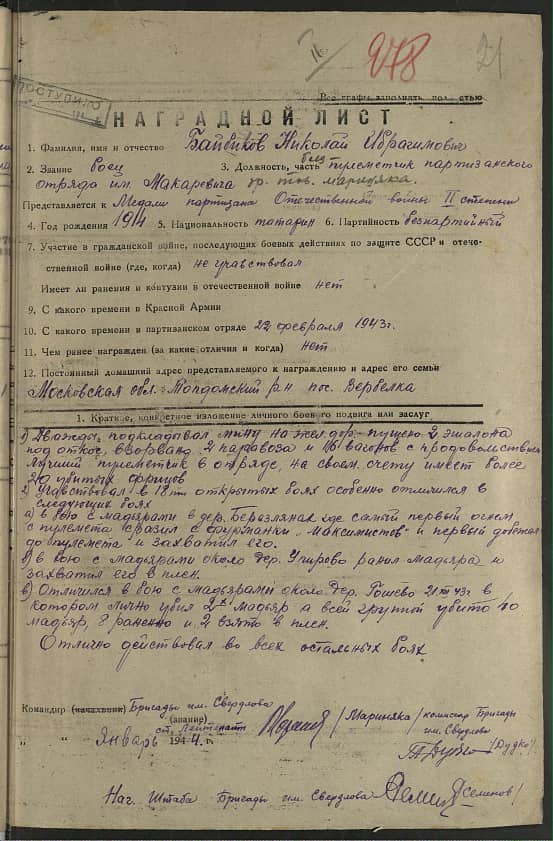 16/ 278 21
Все графы заполнять полностью
ПОСТУПИЛО
НАГРАДНОЙ ЛИСТ
1. Фамилия, имя и отчество Байбиков Николай Ибрагимович
2. Звание боец 3. Должность, часть пулеметчик партизанского
отряда им. Макаревича бр. тов. Мариняка.
Представляется к Медали партизана Отечественной войны II степени
4. Год рождения 1914 5. Национальность татарин 6. Партийность безпартийный
7. Участие в гражданской войне, последующих боевых действиях по защите СССР и отече-
ственной войне (где, когда) не учавствовал
Имеет ли ранения и контузии в отечественной войне нет
9. С какого времени в Красной Армии
10. С какого времени в партизанском отряде 22 февраля 1943 г.
11. Чем ранее награжден (за какие отличия и когда) нет
12. Постоянный домашний адрес представляемого к награждению и адрес его семьи
Московская обл. р-н пос. Вербелка
1. Краткое, конкретное изложение личного боевого подвига или заслуг
1) Дважды, подкладывал мину на жел. дор. пущено 2 эшалона
под откос, взорванд 2 паравоза и 16 вагонов с продовольствием
Лучший пулеметчик в отряде, на своем счету имеет более
20 убитых фрицов
2) Учавствовал в 18ти открытых боях особенно отличился в
следующих боях
а) в бою с мадьярами в дер. Берозлянах где самый первый огнем
с пулемета сразил с "Максимистов" и первый добежал
до пулемета и захватил его.
б) в бою с мадьярами около дер. Угирово ранил мадьяра и
захватил его в плен.
в) Отличился в бою с мадьярами около дер. Гошево 43г в
котором лично убил 2х мадьяр а всей группой убито 40
мадьяр, 8 раненно и 2 взято в плен.
Отлично действовал во всех остальных боях
Командир (начальник) Бригады им. Свердлова
(звание) ст. Лейтенант /Мариняка/ комисар Бригады
им. Свердлова
" " Январь 1944 г. /Дудко/
Нач. Штаба Бригады им Свердлова Семенов/